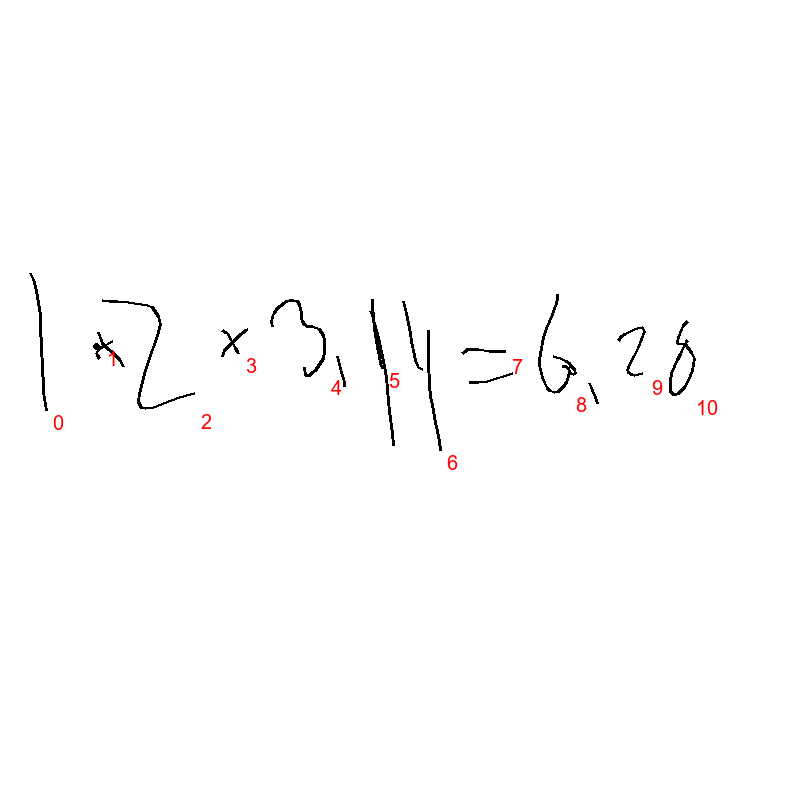 1 × 2 × 3,14 = 6,28
0 1 2 3 4 5 6 7 8 9 10